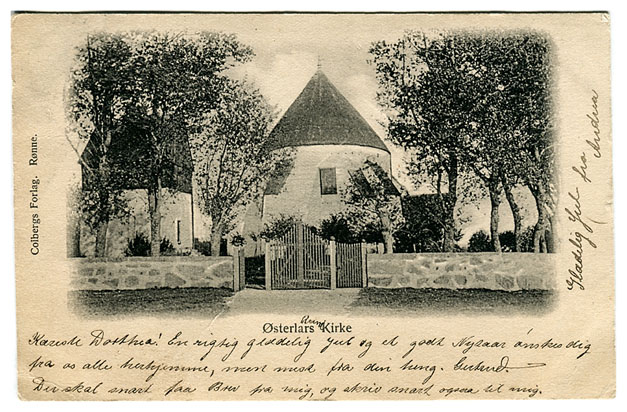 Colbergs Forlag. Rønne.
Østerlars Kirke
Kæreste Dorthea! En rigtig glædelig Jul og et godt Nytaar ønskes dig
fra os alle herhjemme, men mest fra din heng. Gertrud.
Du skal snart faa Brev fra mig, og skriv snart ogsaa til mig.
Glædelig Jul fra Andrea